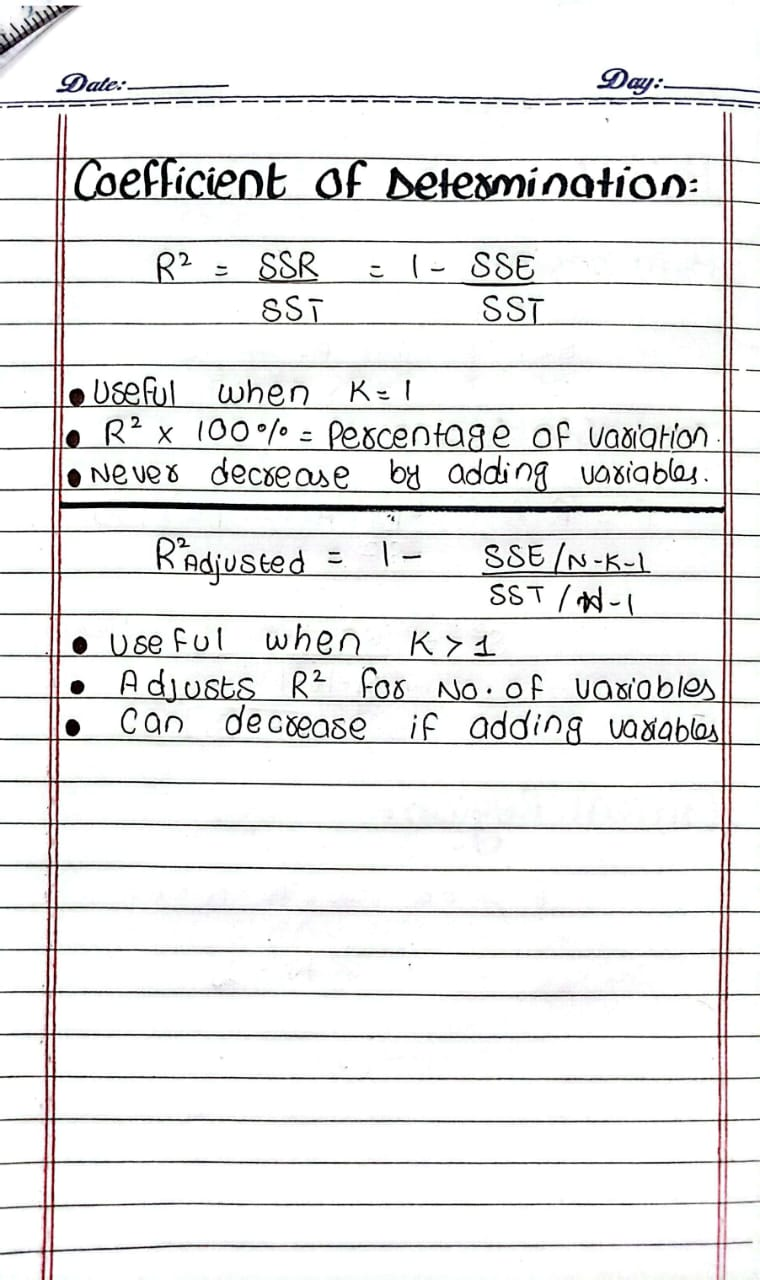 Date: Day:
Coefficient of Determination:
R² = SSR = 1 - SSE
SST SST
• Useful when K = 1
• R² x 100% = Percentage of variation.
• Never decrease by adding variables.
R² Adjusted = 1 - SSE/N-K-1
SST/N-1
• Useful when K > 1
• Adjusts R² for No. of variables
• Can decrease if adding variables